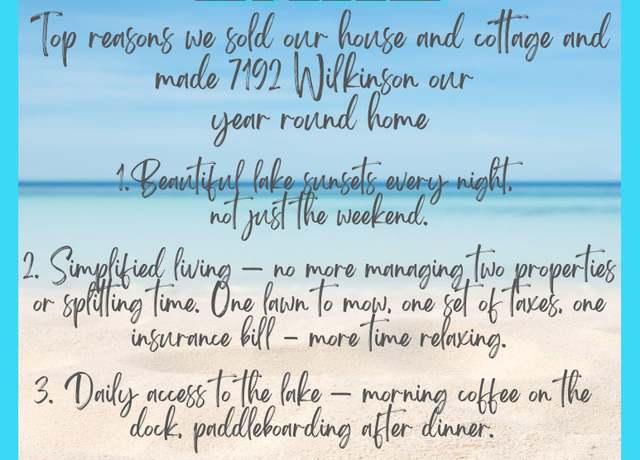 Top reasons we sold our house and cottage and
made 7192 Wilkinson our
year round home
1. Beautiful lake sunsets every night,
not just the weekend.
2. Simplified living – no more managing two properties
or splitting time. One lawn to mow, one set of taxes, one
insurance bill – more time relaxing.
3. Daily access to the lake – morning coffee on the
dock, paddleboarding after dinner.